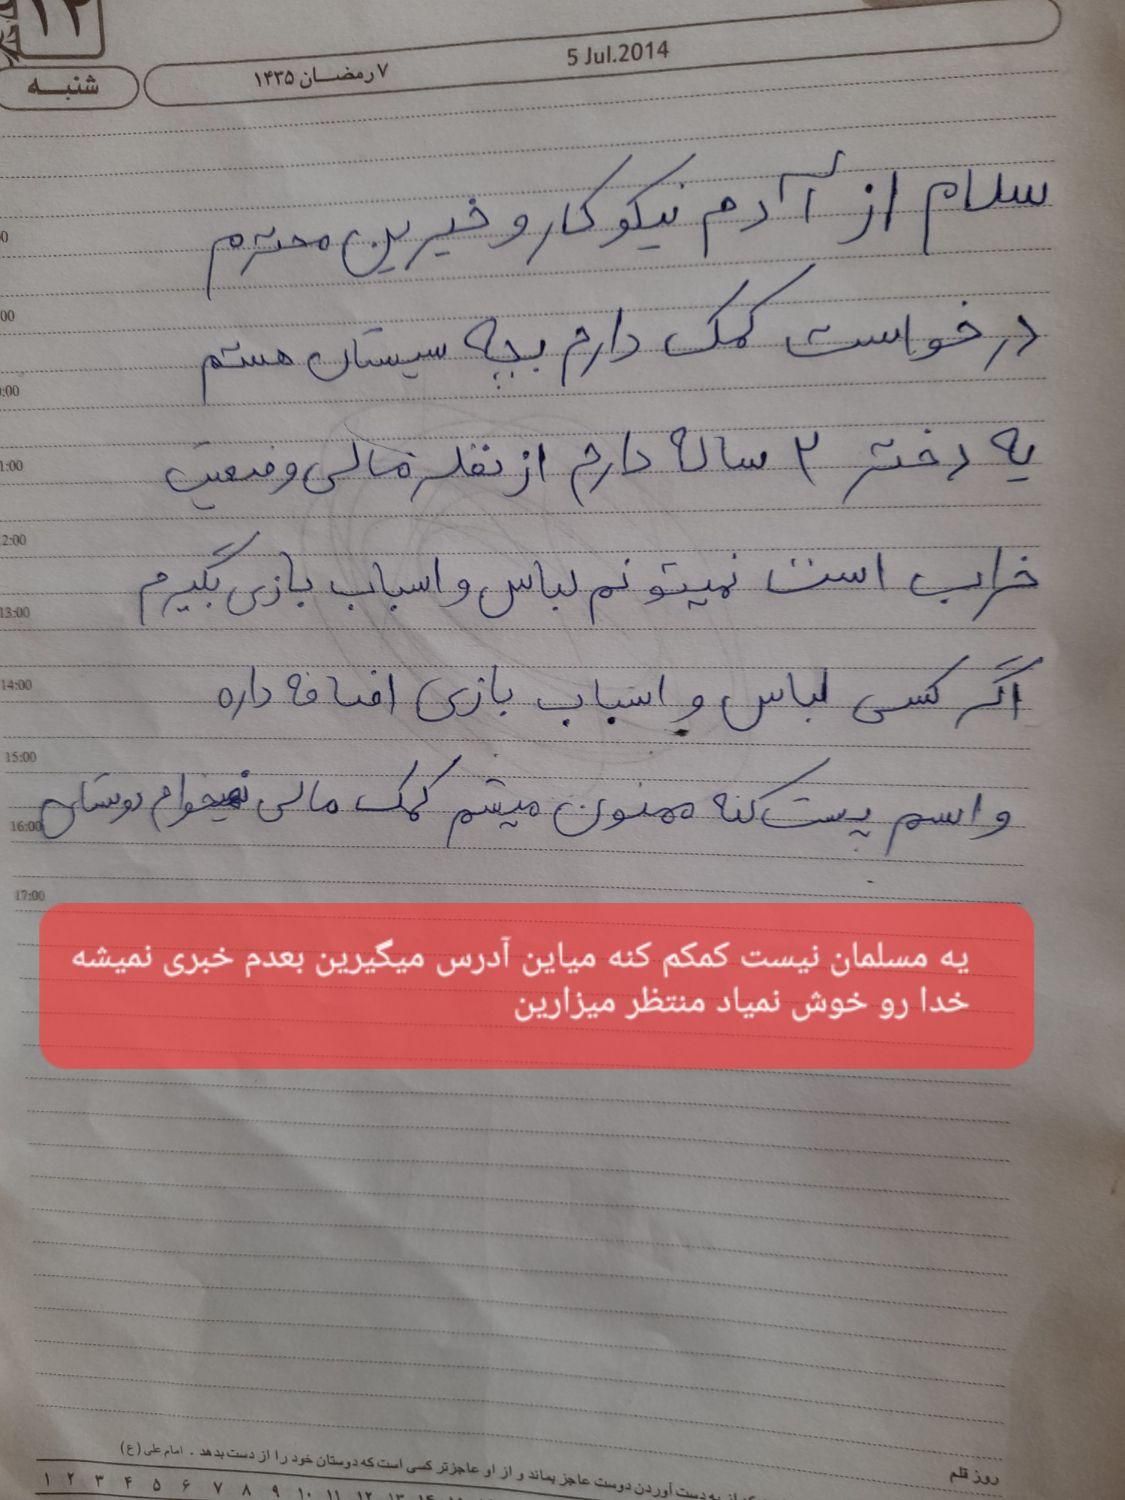 ۱۲
شنبـــه
۷ رمضـــان ۱۴۳۵
5 Jul.2014
سلام از آدم نیکوکار و خیرین محترم
درخواست کمک دارم بچه سیستان هستم
یه دختر ۲ ساله دارم از نظر مالی وضعیت
خراب است نمیتونم لباس و اسباب بازی بگیرم
اگر کسی لباس و اسباب بازی اضافه داره
واسم پست کنه ممنون میشم کمک مالی نمیخوام دوستان
12:00
13:00
14:00
15:00
16:00
17:00
یه مسلمان نیست کمکم کنه میاین آدرس میگیرین بعدم خبری نمیشه
خدا رو خوش نمیاد منتظر میزارین
روز قلم
از به دست آوردن دوست عاجز بماند و از او عاجزتر کسی است که دوستان خود را از دست بدهد . امام علی (ع)
۱ ۲ ۳ ۴ ۵ ۶ ۷ ۸ ۹ ۱۰ ۱۱ ۱۲ ۱۳ ۱۴